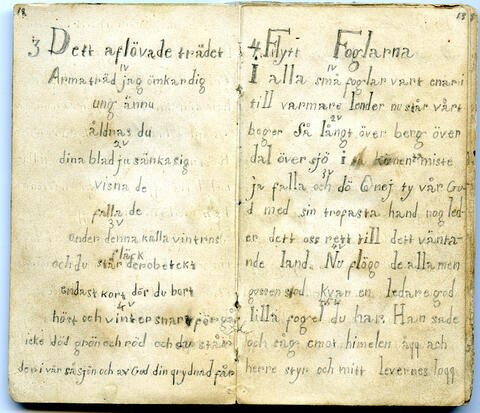 18
3 Dett aflövade trädet
1V
Arma träd jag ömkar dig
ung ännu
åldras du
2V
dina blad ju sänka sig
visna de
falla de
3V
under denna kalla vintrns
fläck
och du står der obetekt
endast kort dör du bort
4V
höst och vinter snart för
icke död grön och röd och du står
den i vår så skön och av God din prydnad får
4. Flytt Foglarna
1V
I alla små foglar vart ena ri
till varmare lender nu står vårt
beger Så långt över berg över
2V
dal över sjö i miste
3V
ja falla och dö O nej ty vår Gu
d med sin tropasta hand nog led
er dett oss rett till dett vänta
nde land. Nu flögo de alla men
qvar en ledare god
lilla fogel du har. Han sade
och såg emot himelen ack
herre styr och mitt levernes lopp